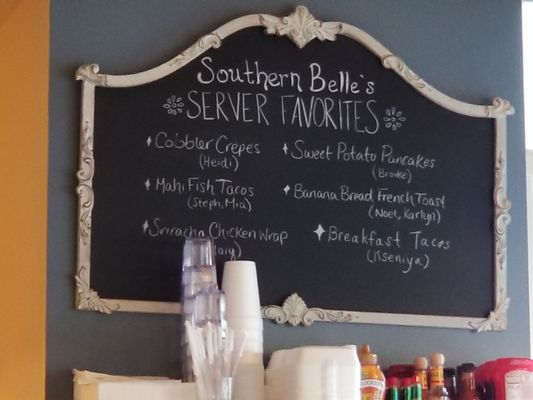 Southern Belle's
SERVER FAVORITES
Cobbler Crepes
(Heidi)
Mahi Fish Tacos
(Steph, Mia)
Sriracha Chicken Wrap
Sweet Potato Pancakes
(Brooke)
Banana Bread French Toast
(Noel, Karlyn)
Breakfast Tacos
(Kseniya)